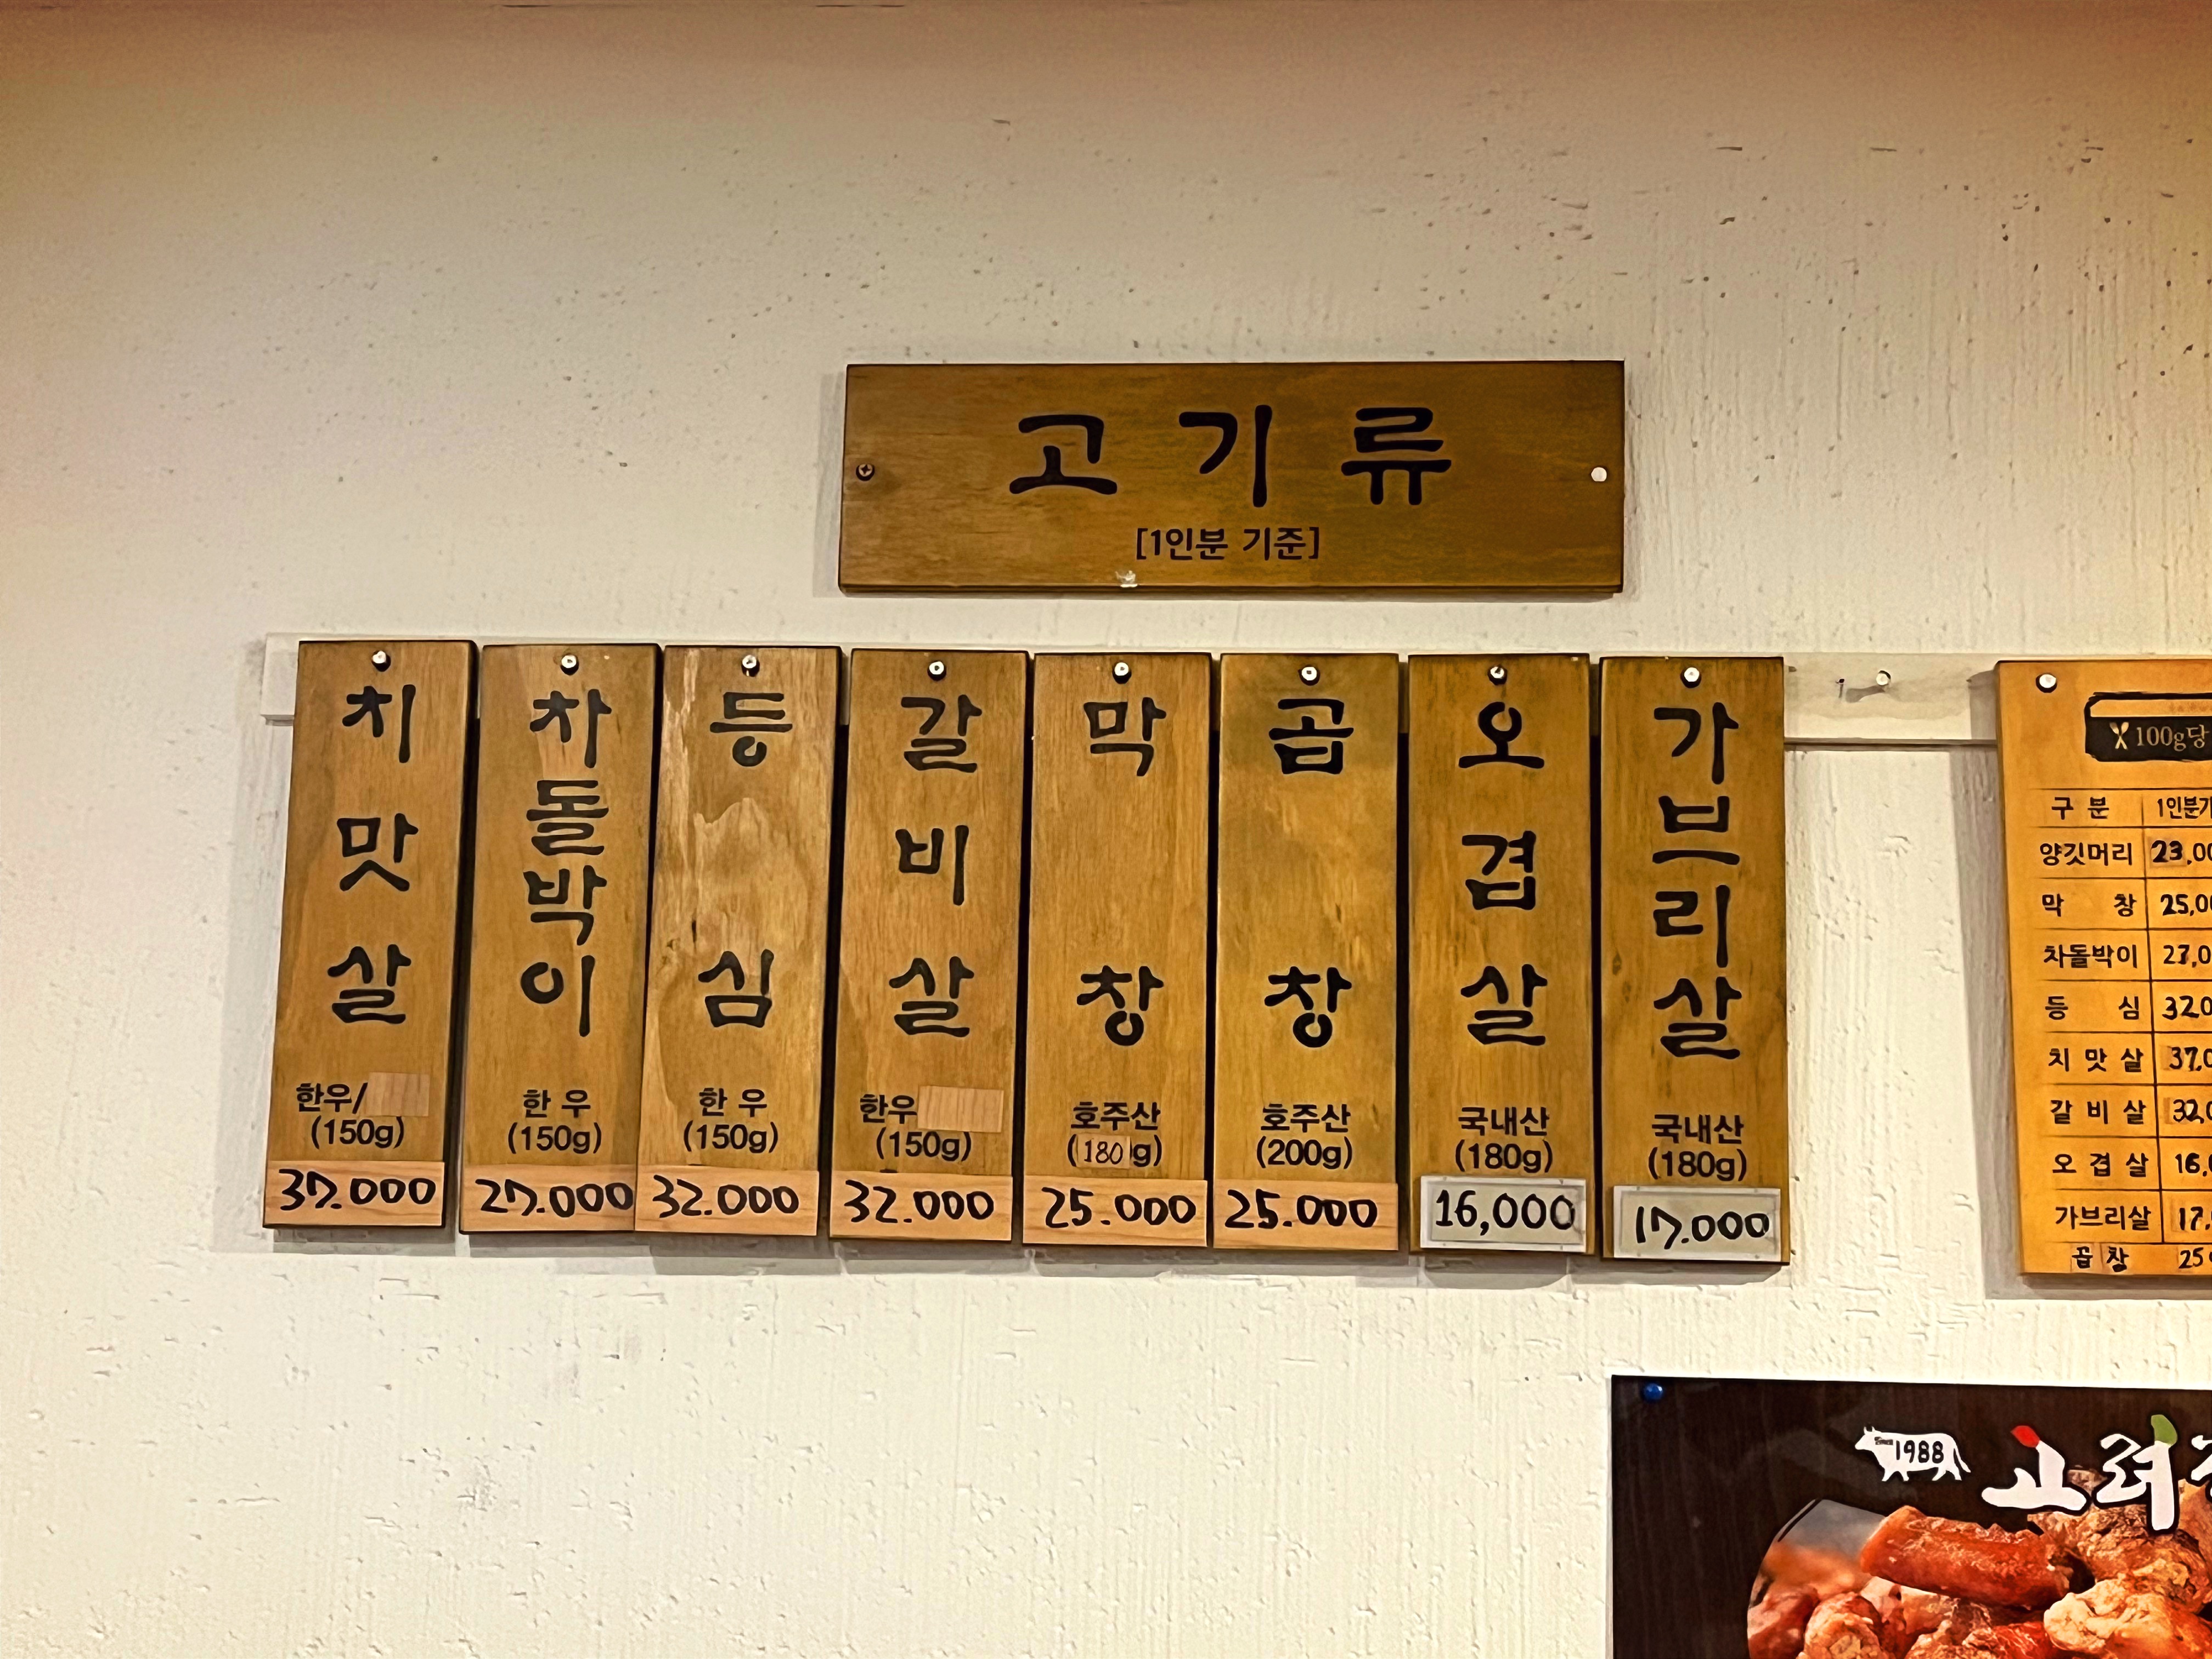 고기류
[1인분 기준]
치맛살
한우/
(150g)
37.000
차돌박이
한 우
(150g)
27.000
등심
한 우
(150g)
32.000
갈비살
한우
(150g)
32.000
막창
호주산
(180g)
25.000
곱창
호주산
(200g)
25.000
오겹살
국내산
(180g)
16,000
가브리살
국내산
(180g)
17.000
100g당
구 분 1인분기
양깃머리 23,00
막 창 25,00
차돌박이 27,0
등 심 32,0
치 맛 살 37,0
갈 비 살 32,0
오 겹 살 16,
가브리살 17,
곱 창 25
1988
고려